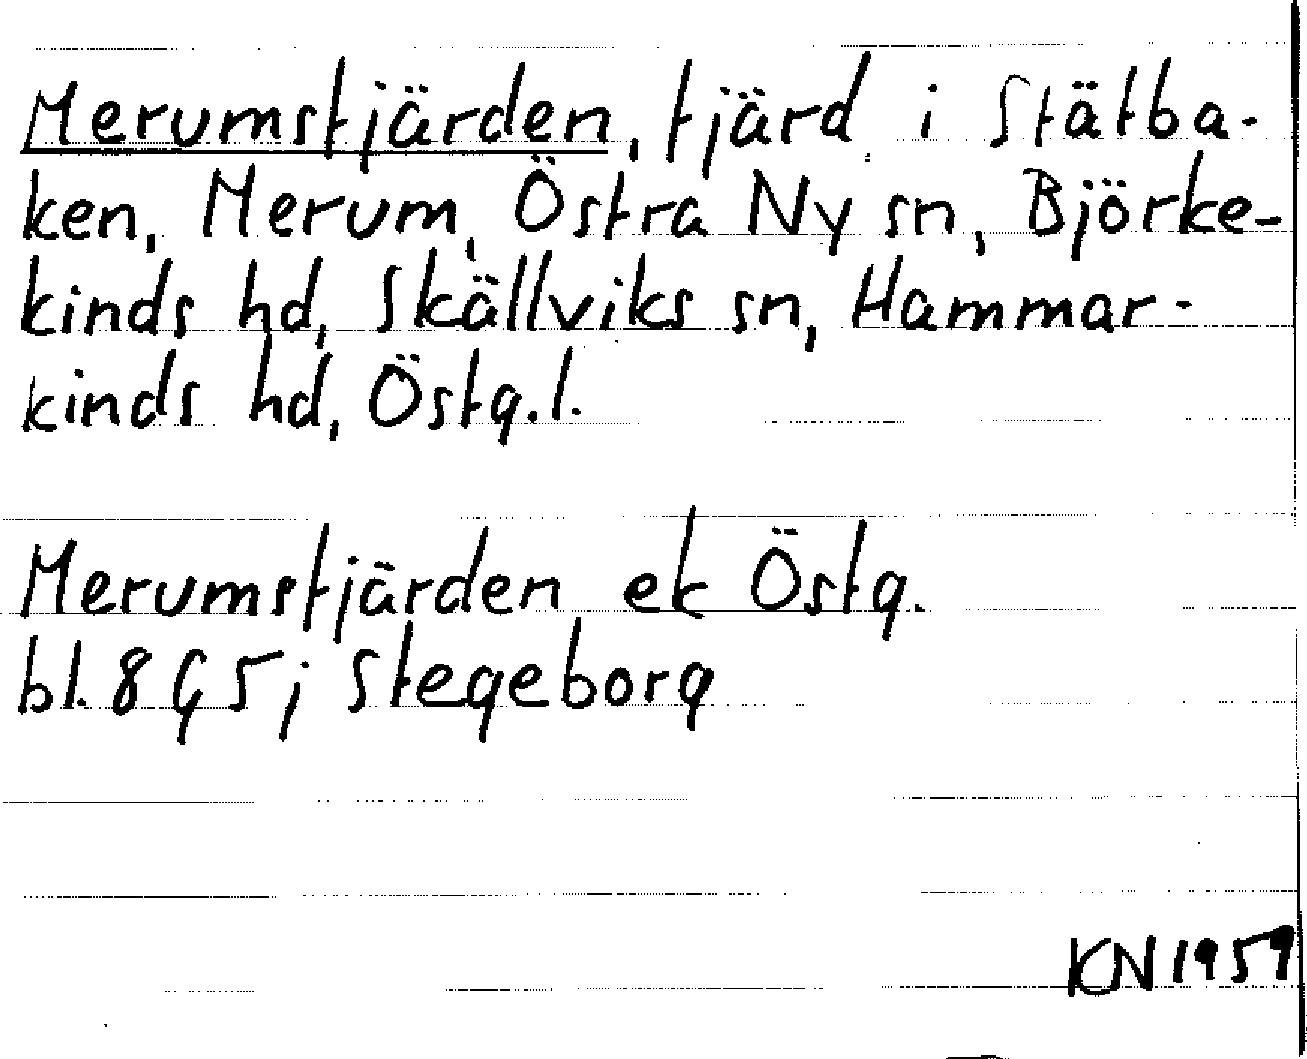 Merumsfjärden, fjärd i Stätba-
ken, Merum, Östra Ny sn, Björke-
kinds hd, Skällviks sn, Hammar-
kinds hd, Östg.l.
Merumsfjärden ek Östg.
bl. 8 G 5 j Stegeborg
KN 1959